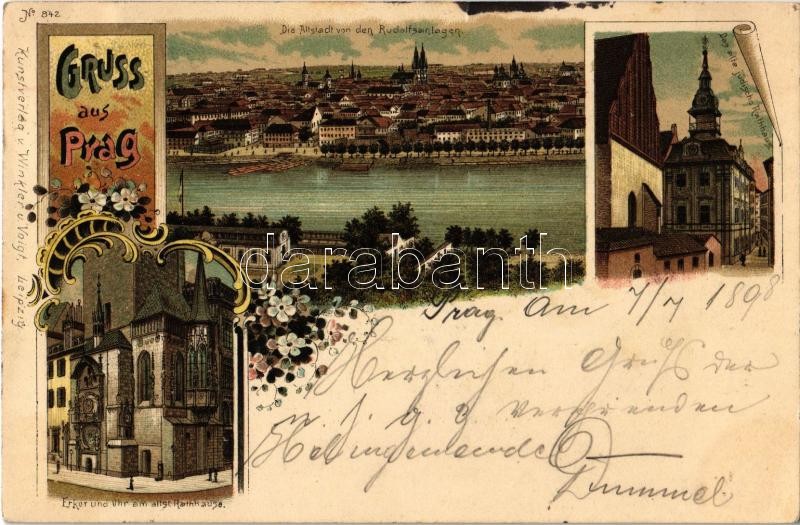 No 842
Die Altstadt von den Rudolfsanlagen.
Das alte jüdische Rathhaus.
Gruss
aus
Prag
Kunstverlag v. Winkler u. Voigt, Leipzig
darabanth
Prag, Am 7/7 1898
Herzlichen Gruß der
Erker und Uhr am altst. Rathhause.
Dummel